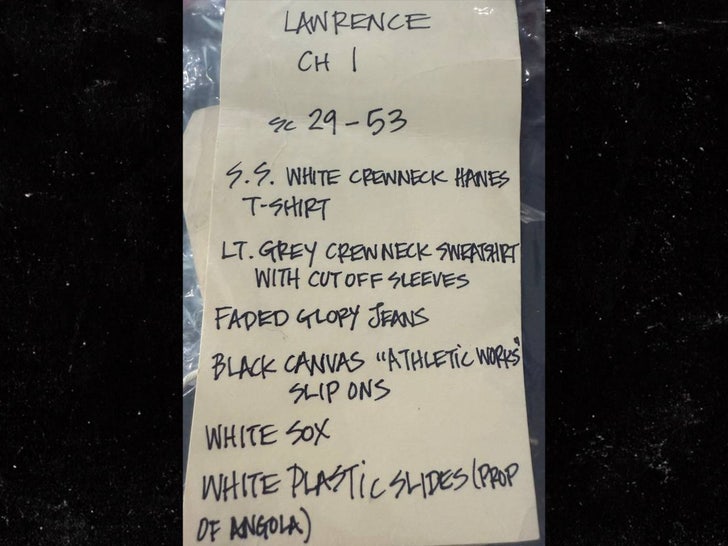 LAWRENCE
CH 1
SC 29-53
S.S. WHITE CREWNECK HANES
T-SHIRT
LT. GREY CREWNECK SWEATSHIRT
WITH CUT OFF SLEEVES
FADED GLORY JEANS
BLACK CANVAS "ATHLETIC WORKS"
SLIP ONS
WHITE SOX
WHITE PLASTIC SLIDES (PROP
OF ANGOLA)